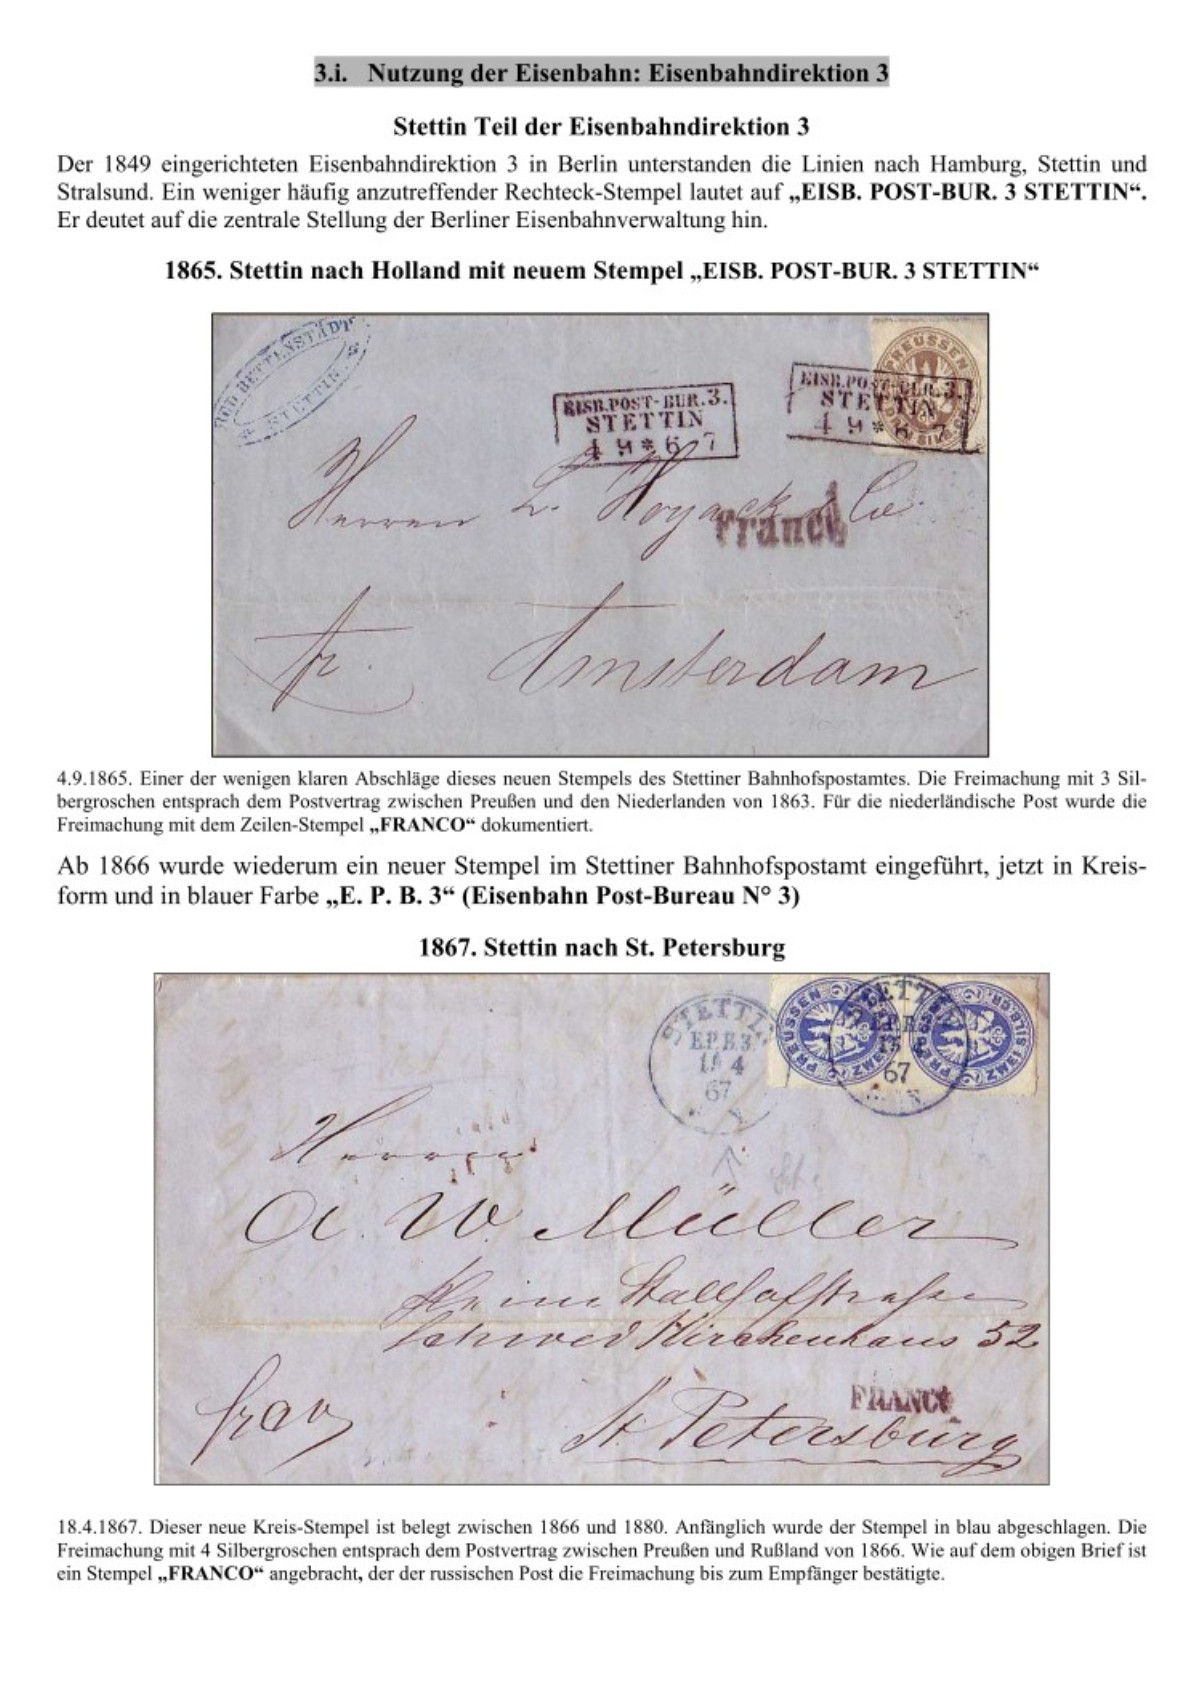 3.i. Nutzung der Eisenbahn: Eisenbahndirektion 3
Stettin Teil der Eisenbahndirektion 3
Der 1849 eingerichteten Eisenbahndirektion 3 in Berlin unterstanden die Linien nach Hamburg, Stettin und
Stralsund. Ein weniger häufig anzutreffender Rechteck-Stempel lautet auf „EISB. POST-BUR. 3 STETTIN“.
Er deutet auf die zentrale Stellung der Berliner Eisenbahnverwaltung hin.
1865. Stettin nach Holland mit neuem Stempel „EISB. POST-BUR. 3 STETTIN“
BETTENSTÄDT
STETTIN
PREUSSEN
EISB.POST-BUR.3.
STETTIN
4 9 * 6 7
EISB.POST-BUR.3.
STETTIN
4 9 * 6 7
Herren L. Hoyack & Co.
Franco
fr. Amsterdam
4.9.1865. Einer der wenigen klaren Abschläge dieses neuen Stempels des Stettiner Bahnhofspostamtes. Die Freimachung mit 3 Sil-
bergroschen entsprach dem Postvertrag zwischen Preußen und den Niederlanden von 1863. Für die niederländische Post wurde die
Freimachung mit dem Zeilen-Stempel „FRANCO“ dokumentiert.
Ab 1866 wurde wiederum ein neuer Stempel im Stettiner Bahnhofspostamt eingeführt, jetzt in Kreis-
form und in blauer Farbe „E. P. B. 3“ (Eisenbahn Post-Bureau N° 3)
1867. Stettin nach St. Petersburg
STETTIN
E.P.B.3.
18 4
67
PREUSSEN ZWEI SILB.GR.
STETTIN
67
PREUSSEN ZWEI SILB.GR.
Herrn
A. W. Müller
Kleine Stallhofstraße
Schwed Kirchenhaus 52
FRANCO
franco
St. Petersburg
18.4.1867. Dieser neue Kreis-Stempel ist belegt zwischen 1866 und 1880. Anfänglich wurde der Stempel in blau abgeschlagen. Die
Freimachung mit 4 Silbergroschen entsprach dem Postvertrag zwischen Preußen und Rußland von 1866. Wie auf dem obigen Brief ist
ein Stempel „FRANCO“ angebracht, der der russischen Post die Freimachung bis zum Empfänger bestätigte.